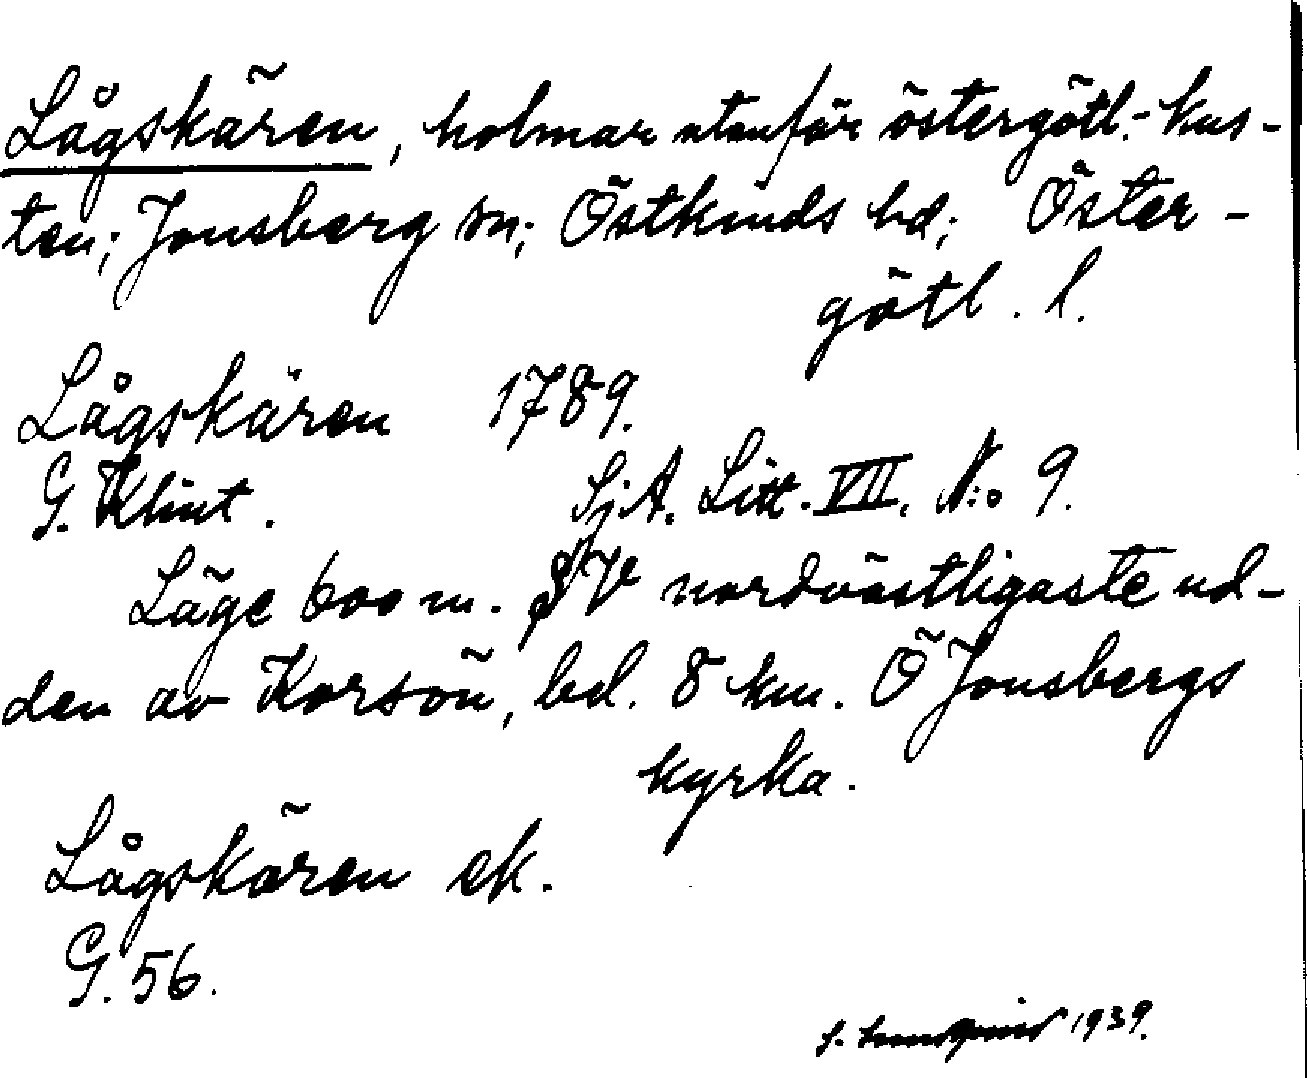 Lågskären, holmar utanför östergötl. kus-
ten; Jonsberg sn; Östkinds hd; Öster-
götl. l.
Lågskären 1789.
G. Klint. SjA. Litt. VII. N:o 9.
Läge 600 m. SV nordvästligaste ud-
den av Korsö, bd. 8 km. Ö Jonsbergs
kyrka.
Lågskären ek.
G. 56.
S. 1939.